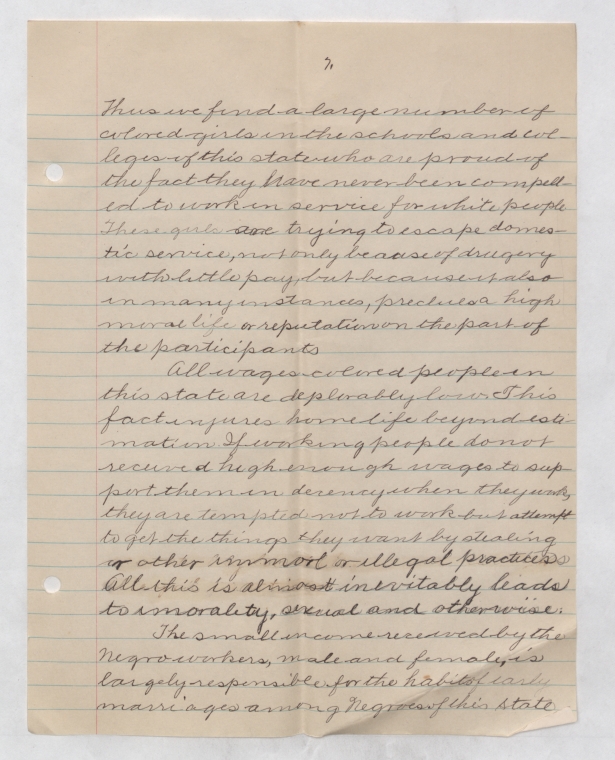 7.
Thus we find a large number of
colored girls in the schools and col-
leges of this state who are proud of
the fact they have never been compell-
ed to work in service for white people
These girls are trying to escape domes-
tic service, not only because of drugery
with little pay, but because it also
in many instances, preclues a high
moral life or reputation on the part of
the participants
All wages colored people in
this state are deplorably low. This
fact injures home life beyond esti
mation If working people do not
received high enough wages to sup-
port them in decency when they work,
they are tempted not to work but attempt
to get the things they want by stealing
or other immorl or illegal practices
All this is almost inevitably leads
to imorality, sexual and otherwise.
The small income received by the
Negro workers, male and female, is
largely responsible for the habits of early
marriages among Negroes of this State